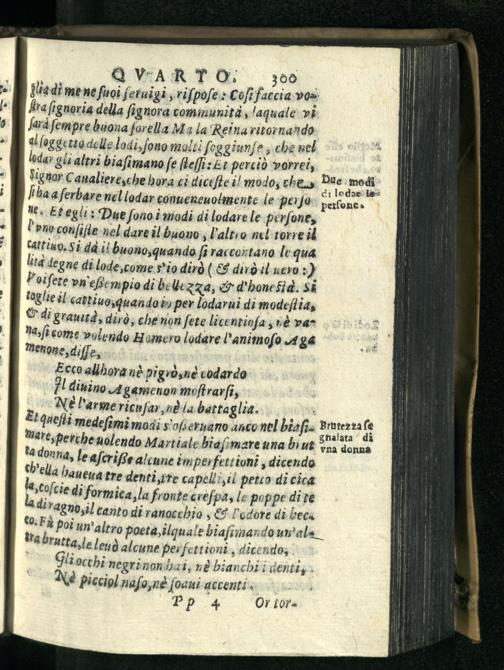 QVARTO. 300
glia di me ne suoi seruigi, rispose: Così faccia vo-
stra signoria della signora communità, laquale vi
sarà sempre buona sorella Ma la Reina ritornando
al soggetto delle lodi, sono molti soggiunse, che nel
lodar gli altri biasimano se stessi: Et perciò vorrei,
Signor Caualiere, che hora ci diceste il modo, che
si ha a serbare nel lodar conueneuolmente le perso
ne. Et egli: Due sono i modi di lodare le persone,
l'vno consiste nel dare il buono, l'altro nel torre il
cattiuo. Si dà il buono, quando si raccontano le qua
lità degne di lode, come s'io dirò (& dirò il uero:)
Voi sete vn'essempio di bellezza, & d'honestà. Si
toglie il cattiuo, quando io per lodarui di modestia,
& di grauità, dirò, che non sete licentiosa, nè va-
na, si come volendo Homero lodare l'animoso Aga
menone, disse,
Ecco allhora nè pigrò, nè codardo
Il diuino Agamenon mostrarsi,
Nè l'arme ricusar, nè la battaglia.
Et questi medesimi modi s'osseruano anco nel biasi-
mare, perche uolendo Martiale biasimare una brut
ta donna, le ascrisse alcune imperfettioni, dicendo
ch'ella haueua tre denti, tre capelli, il petto di cica
la, coscie di formica, la fronte crespa, le poppe di te
la di ragno, il canto di ranocchio, & l'odore di bec-
co. Fù poi un'altro poeta, ilquale biasimando un'al-
tra brutta, le leuò alcune perfettioni, dicendo,
Gli occhi negri non hai, nè bianchi i denti,
Nè picciol naso, nè soaui accenti.
Pp 4 Or tor-
Due modi
di lodar le
persone.
Brutezza se
gnalata di
vna donna